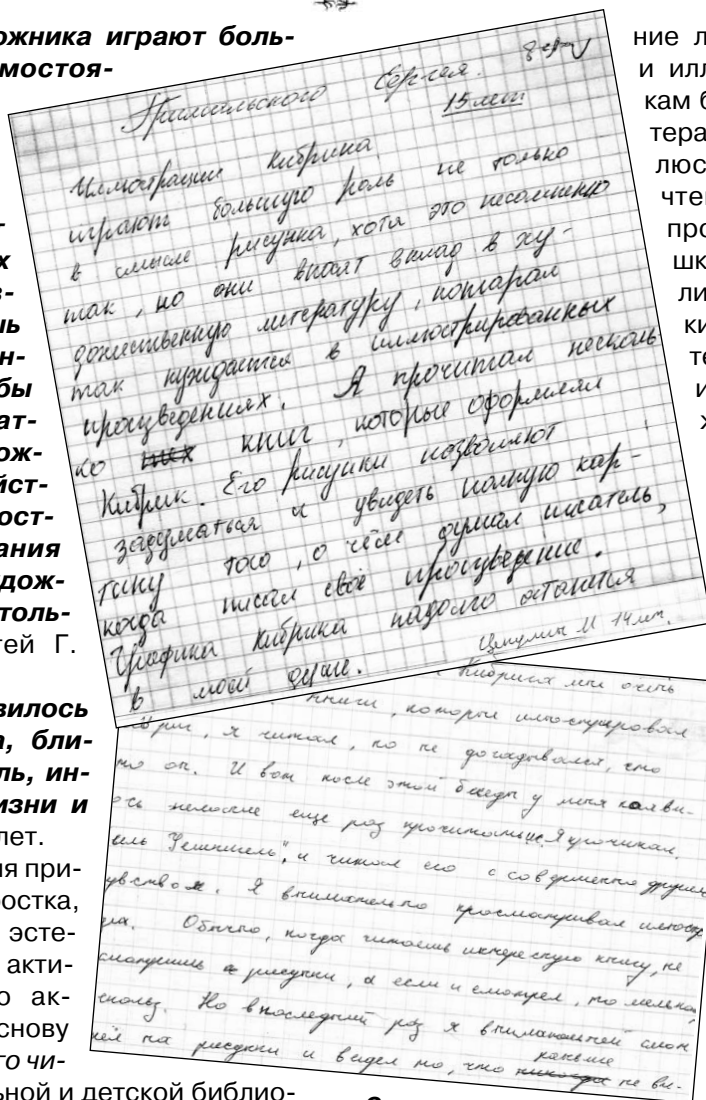 ожника играют боль-
мостоя-
т-
х
з-
шь
н-
бы
ат-
ож-
йст-
ост-
ания
дож-
толь-
тей Г.
вилось
а, бли-
ль, ин-
изни и
лет.
ия при-
ростка,
эсте-
акти-
о ак-
снову
го чи-
льной и детской библио-
Сергея. 8 кл
15 лет
Иллюстрации Кибрика
играют большую роль не только
в смысле рисунка, хотя это несомненно
так, но они вносят вклад в ху-
дожественную литературу, которая
так нуждается в иллюстрированных
произведениях. Я прочитал несколь
ко книг, которые оформлял
Кибрик. Его рисунки позволяют
задуматься и увидеть полную кар-
тину того, о чём думал писатель,
когда писал своё произведение.
Графика Кибрика надолго останется
в моей душе.
М 14 лет.
Кибрика мы очень
книги, которые иллюстрировал
брик, я читал, но не догадывался, что
то он. И вот после этой беседы у меня появи-
ось желание еще раз прочитать их. Я прочитал
и читал его с совершенно другим
увством. Я внимательно просматривал иллюстр
Обычно, когда читаешь интересную книгу, не
смотришь рисунки, а если и смотрел, то мельком,
вскользь. Но в последний раз я внимательней смот
рел на рисунки и видел то, что раньше не ви-
ние л
и илл
кам б
тера
люс
чтен
про
шк
ли
ки
те
и
х